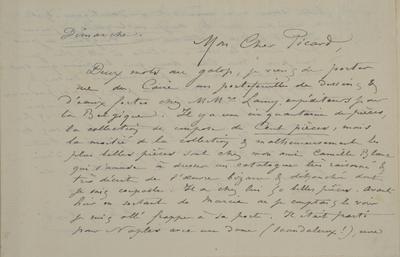 Dimanche.
Mon Cher Picard,
Deux mots au galop, je viens de porter
rue du Caire un portefeuille de dessins &
d'eaux fortes chez M.M. Lamy, expéditeurs pour
la Belgique. Il y a une cinquantaine de pièces,
la collection se compose de Cent pièces, mais
la moitié de la collection & malheureusement les
plus belles pièces sont chez mon ami Camille Blanc
qui s'amuse à dresser un catalogue très raisonné &
très décrit de l'œuvre bizarre & débauché dont
je suis coupable. Il a chez lui 50 belles pièces. avant
hier en sortant de je comptais le voir
je suis allé frapper à sa porte. Il était parti
pour Naples avec une dame (scandaleux!), une